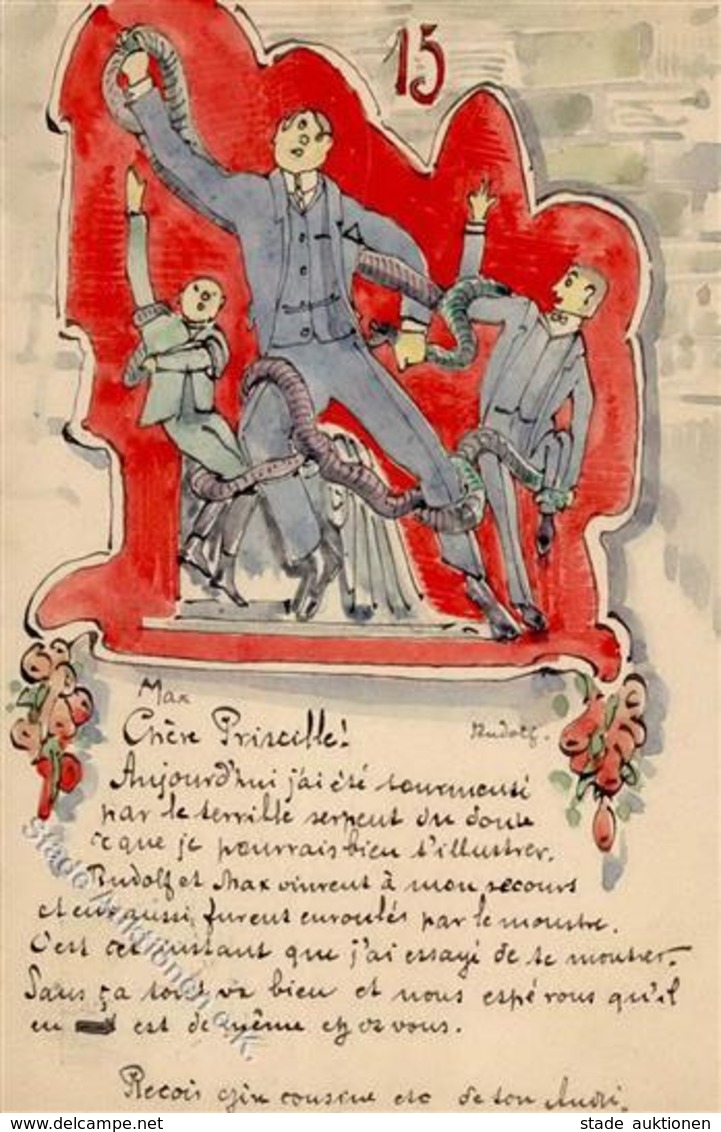 15
Max
Rudolf.
Chère Priscille!
Aujourd'hui j'ai été tourmenté
par le terrible serpent du doute
ce que je pourrais bien t'illustrer.
Rudolf et Max vinrent à mon secours
et eux aussi, furent enroulés par le monstre.
C'est cet instant que j'ai essayé de te montrer.
Sans ça tout va bien et nous espérons qu'il
en est de même chez vous.
Reçois chère cousine etc de ton André.
Stade Auktionen e.K.
stade auktionen